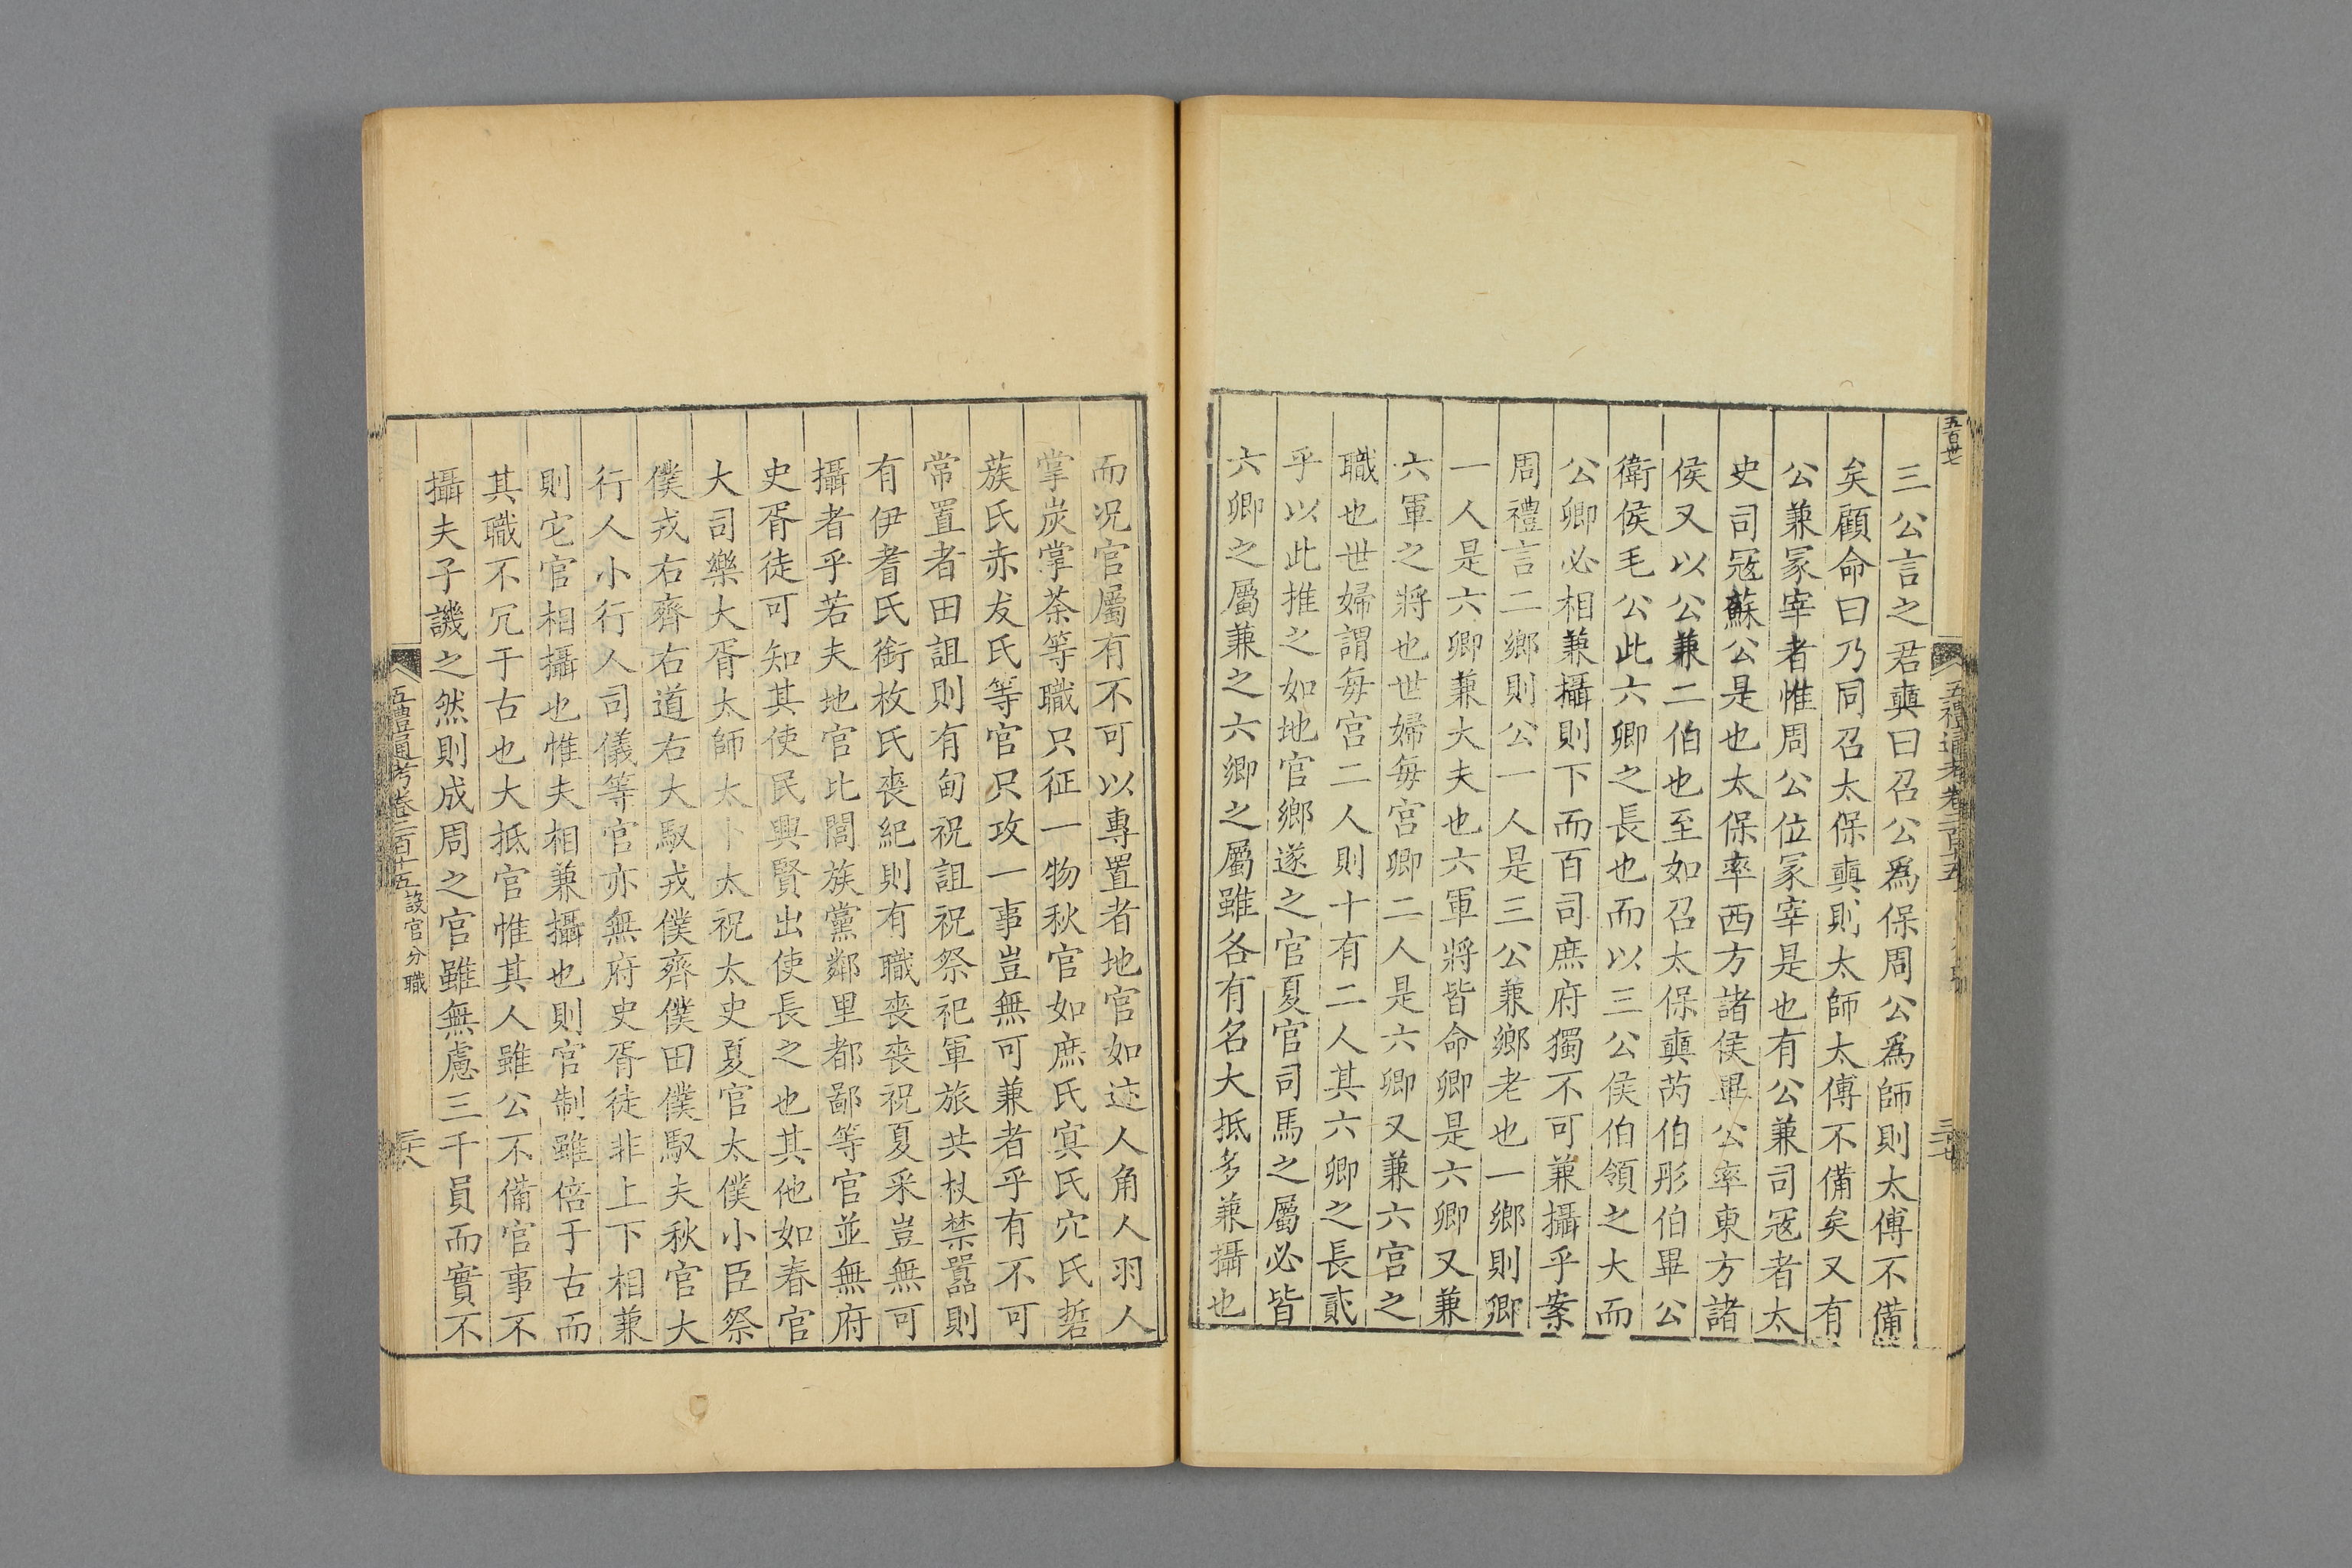 五百卅七
三公言之君奭曰召公爲保周公爲師則太傅不備
矣顧命曰乃同召太保奭則太師太傅不備矣又有
公兼冢宰者惟周公位冢宰是也有公兼司寇者太
史司寇蘇公是也太保率西方諸侯畢公率東方諸
侯又以公兼二伯也至如召太保奭芮伯彤伯畢公
衛侯毛公此六卿之長也而以三公侯伯領之大而
公卿必相兼攝則下而百司庶府獨不可兼攝乎案
周禮言二鄉則公一人是三公兼鄉老也一鄉則卿
一人是六卿兼大夫也六軍將皆命卿是六卿又兼
六軍之將也世婦每宮卿二人是六卿又兼六宮之
職也世婦謂每宮二人則十有二人其六卿之長貳
乎以此推之如地官鄉遂之官夏官司馬之屬必皆
六卿之屬兼之六卿之屬雖各有名大抵多兼攝也
五禮通考卷二百十五
三十七
而況官屬有不可以專置者地官如迹人角人羽人
掌炭掌荼等職只征一物秋官如庶氏冥氏穴氏硩
蔟氏赤犮氏等官只攻一事豈無可兼者乎有不可
常置者田詛則有甸祝詛祝祭祀軍旅共杖禁嚚則
有伊耆氏銜枚氏喪紀則有職喪喪祝夏采豈無可
攝者乎若夫地官比閭族黨鄰里都鄙等官並無府
史胥徒可知其使民興賢出使長之也其他如春官
大司樂大胥太師太卜太祝太史夏官太僕小臣祭
僕戎右齊右道右大馭戎僕齊僕田僕馭夫秋官大
行人小行人司儀等官亦無府史胥徒非上下相兼
則它官相攝也惟夫相兼攝也則官制雖倍于古而
其職不冗于古也大抵官惟其人雖公不備官事不
攝夫子譏之然則成周之官雖無慮三千員而實不
五禮通考卷二百十五 設官分職
三十八